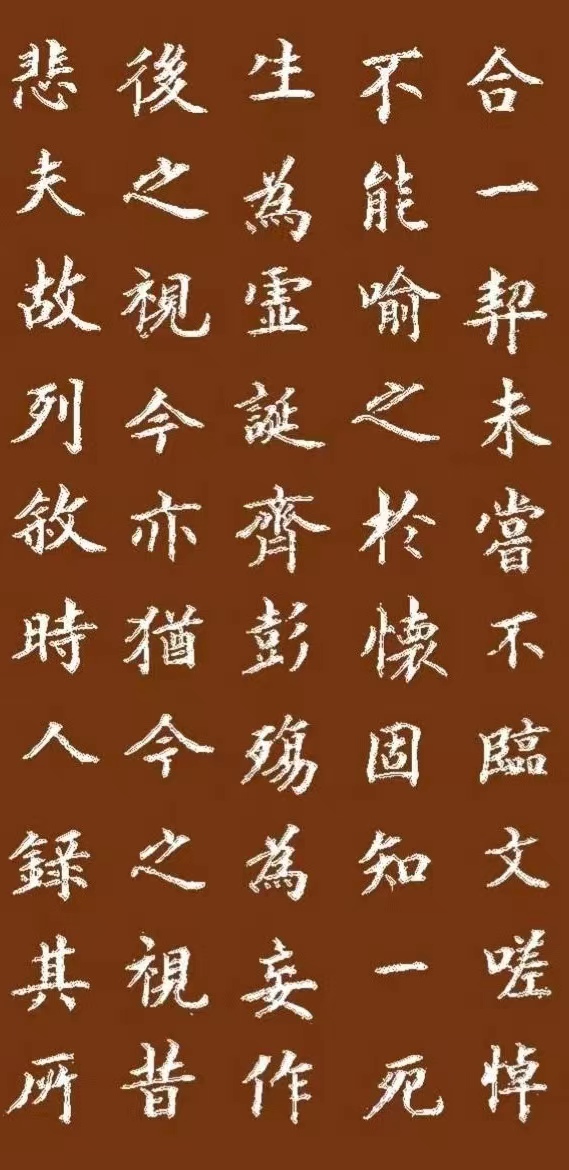 合一契未嘗不臨文嗟悼
不能喻之於懷固知一死
生為虛誕齊彭殤為妄作
後之視今亦猶今之視昔
悲夫故列敘時人錄其所